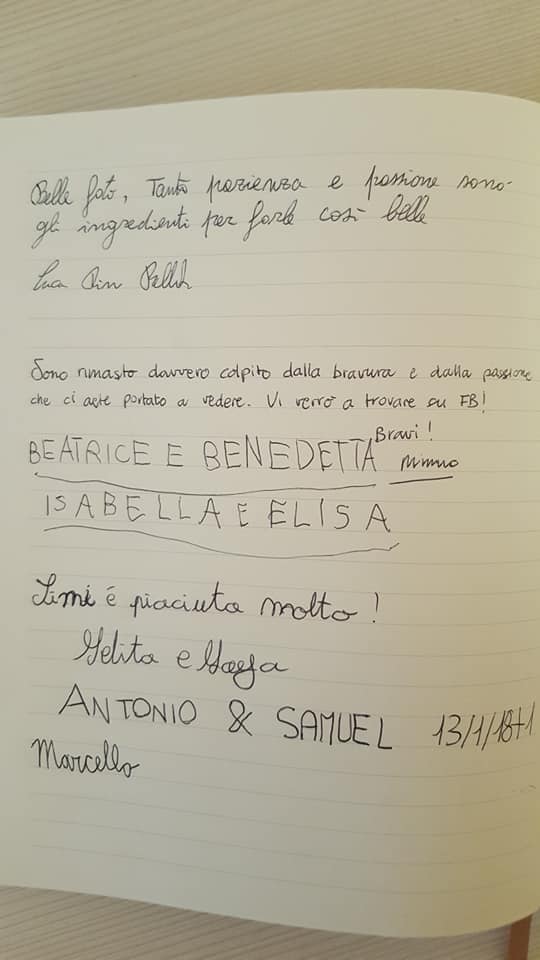 Belle foto, Tanta pazienza e passione sono
gli ingredienti per farle così belle
Luca
Sono rimasto davvero colpito dalla bravura e dalla passione
che ci avete portato a vedere. Vi verrò a trovare su FB!
Bravi!
BEATRICE E BENEDETTA
ISABELLA E ELISA
mi è piaciuta molto!
e
ANTONIO & SAMUEL 13/1/18+1
Marcello